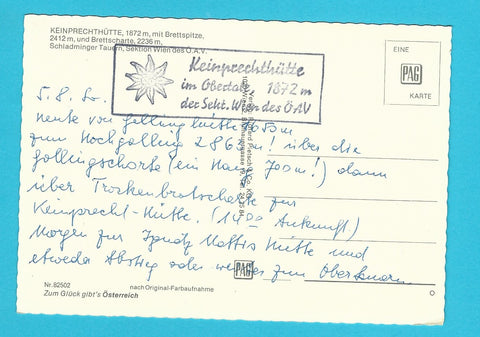 KEINPRECHTHÜTTE, 1872 m, mit Brettspitze,
2412 m, und Brettscharte, 2236 m,
Schladminger Tauern, Sektion Wien des Ö.A.V.
Keinprechthütte
im Obertale 1872 m
der Sekt. Wien des ÖAV
EINE
PAG
KARTE
5.8.
Heute von Gollinghütte
zum Hochgolling 2863 m! über die
Gollingscharte (ein 700 m!) dann
über Trockenbrotscharte zur
Keinprecht-Hütte. (14 00 Ankunft)
Morgen zur Ignatz Mattis Hütte und
entweder Abstieg oder weiter zum Obertauern.
PAG
Nr. 82502
nach Original-Farbaufnahme
Zum Glück gibt's Österreich